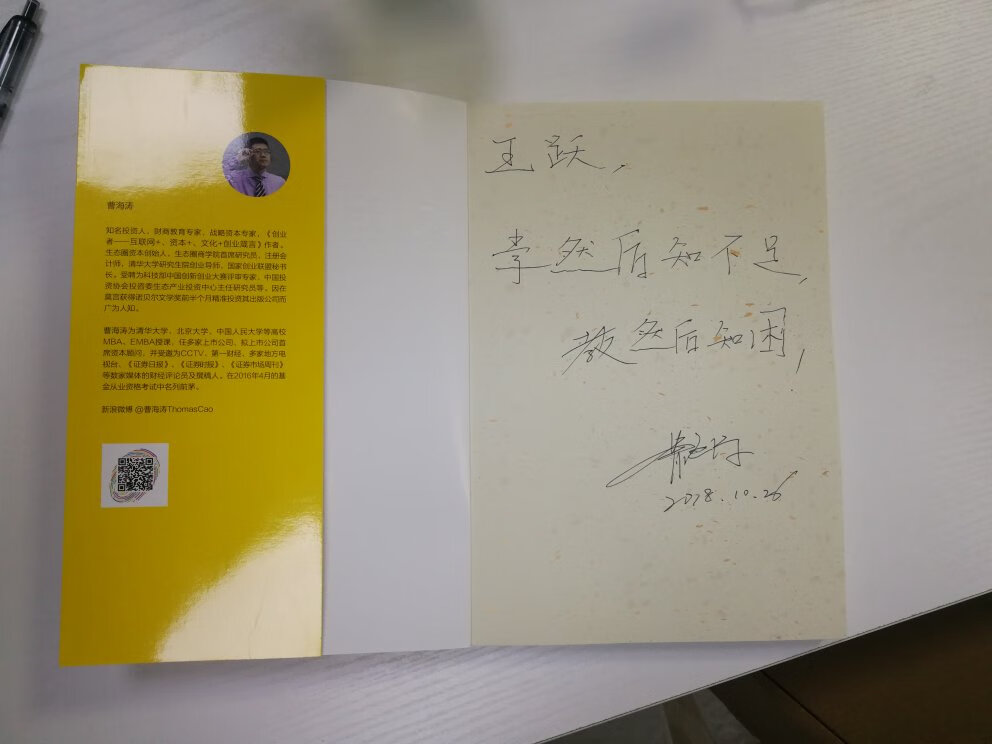 曹海涛
知名投资人，财商教育专家，战略资本专家，《创业
者——互联网+、资本+、文化+创业箴言》作者。
生态圈资本创始人，生态圈商学院首席研究员，注册会
计师，清华大学研究生院创业导师，国家创业联盟秘书
长。受聘为科技部中国创新创业大赛评审专家，中国投
资协会投咨委生态产业投资中心主任研究员等。因在
莫言获得诺贝尔文学奖前半个月精准投资其出版公司而
广为人知。
曹海涛为清华大学、北京大学、中国人民大学等高校
MBA、EMBA授课，任多家上市公司、拟上市公司首
席资本顾问，并受邀为CCTV、第一财经、多家地方电
视台、《证券日报》、《证券时报》、《证券市场周刊》
等数家媒体的财经评论员及撰稿人。在2016年4月的基
金从业资格考试中名列前茅。
新浪微博 @曹海涛ThomasCao
王跃，
学然后知不足，
教然后知困，
2018.10.26